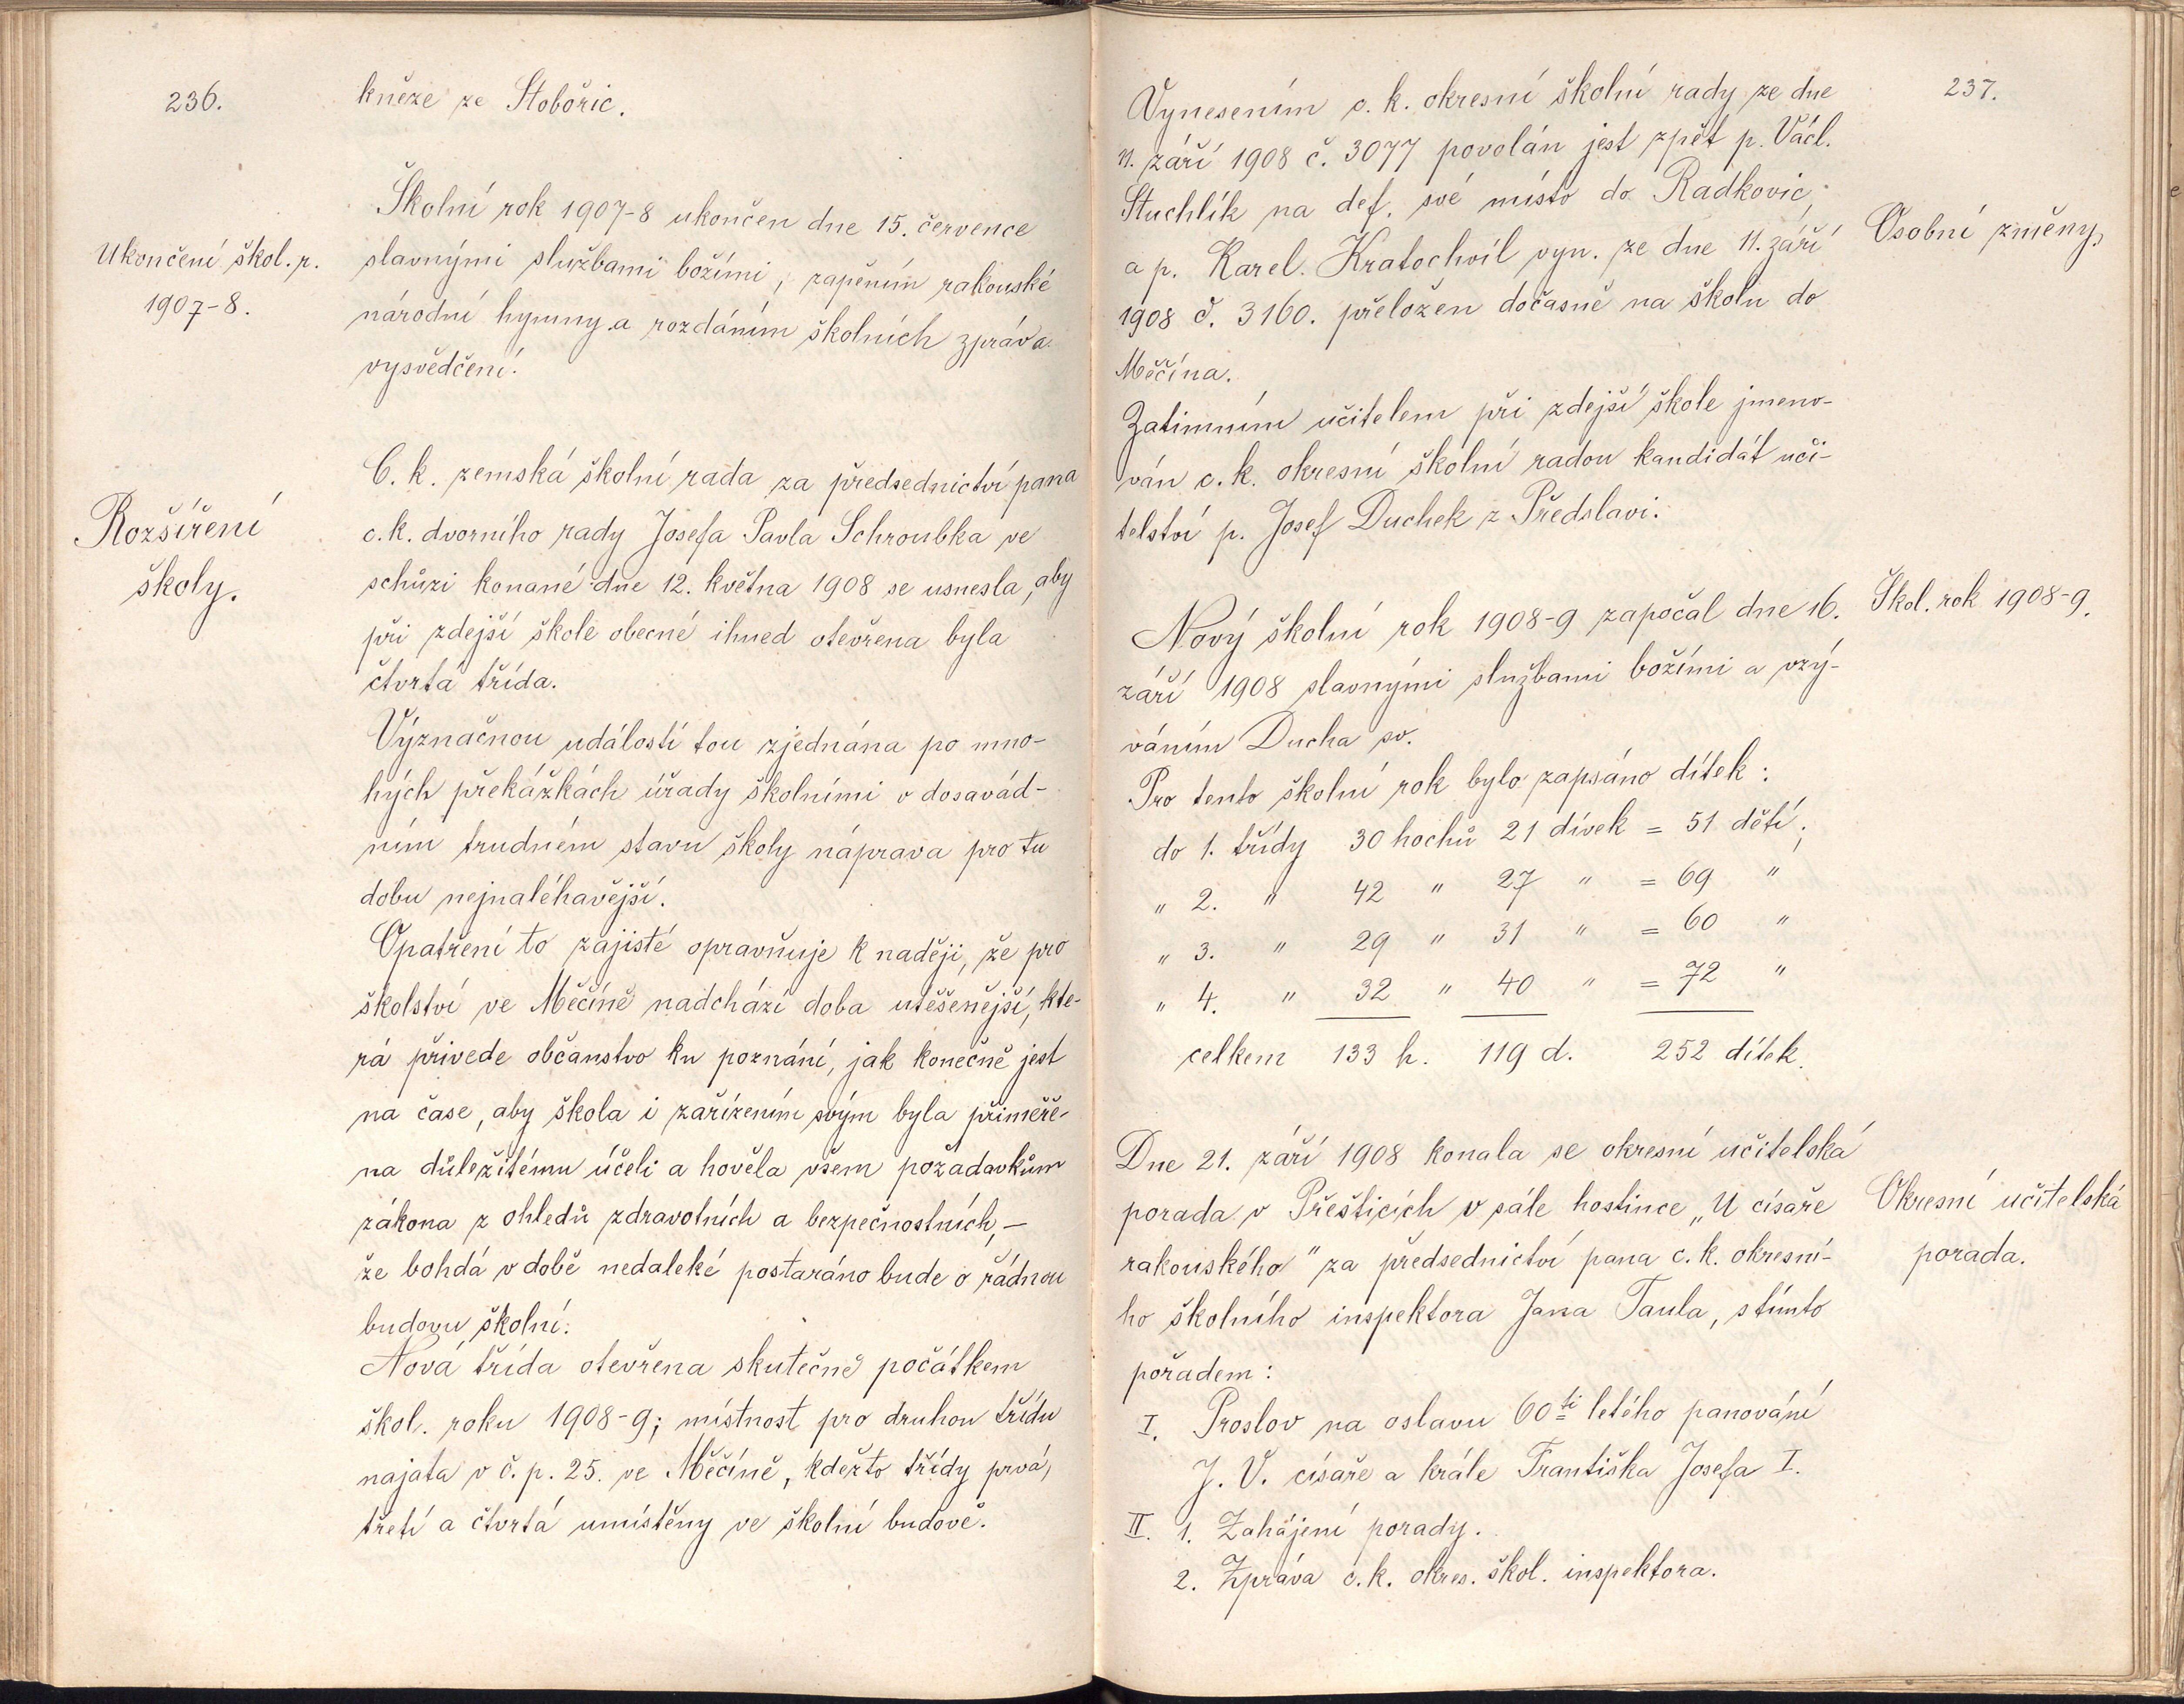 236.
kněze ze Stobořic.
Školní rok 1907-8 ukončen dne 15. července
Ukončení škol. r.
1907-8.
slavnými službami božími, zapěním rakouské
národní hymny a rozdáním školních zpráv a
vysvědčení.
Rozšíření
školy.
C. k. zemská školní rada za předsednictví pana
c. k. dvorního rady Josefa Pavla Schroubka ve
schůzi konané dne 12. května 1908 se usnesla, aby
při zdejší škole obecné ihned otevřena byla
čtvrtá třída.
Význačnou událostí tou zjednána po mno-
hých překážkách úřady školními v dosavád-
ním trudném stavu školy náprava pro tu
dobu nejnaléhavější.
Opatření to zajisté opravňuje k naději, že pro
školství ve Měčíně nadchází doba utěšenější, kte-
rá přivede občanstvo ku poznání, jak konečně jest
na čase, aby škola i zařízením svým byla přiměře-
na důležitému účeli a hověla všem požadavkům
zákona z ohledů zdravotních a bezpečnostních, —
že bohdá v době nedaleké postaráno bude o řádnou
budovu školní.
Nová třída otevřena skutečně počátkem
škol. roku 1908-9; místnost pro druhou třídu
najata v č. p. 25. ve Měčíně, kdežto třídy prvá,
třetí a čtvrtá umístěny ve školní budově.
237.
Vynesením c. k. okresní školní rady ze dne
11. září 1908 č. 3077 povolán jest zpět p. Václ.
Stuchlík na def. své místo do Radkovic,
a p. Karel. Kratochvíl vyn. ze dne 11. září
Osobní změny.
1908 č. 3160. přeložen dočasně na školu do
Měčína.
Zatimním učitelem při zdejší škole jmeno-
ván c. k. okresní školní radou kandidát uči-
telství p. Josef Duchek z Předslavi.
Nový školní rok 1908-9 započal dne 16.
Škol. rok 1908-9.
září 1908 slavnými službami božími a vzý-
váním Ducha sv.
Pro tento školní rok bylo zapsáno dítek:
do 1. třídy 30 hochů 21 dívek = 51 dětí;
" 2. " 42 " 27 " = 69 "
" 3. " 29 " 31 " = 60 "
" 4. " 32 " 40 " = 72 "
celkem 133 h. 119 d. 252 dítek.
Dne 21. září 1908 konala se okresní učitelská
porada v Přešticích v sále hostince „U císaře
rakouského" za předsednictví pana c. k. okresní-
Okresní učitelská
porada.
ho školního inspektora Jana Taula, s tímto
pořadem:
I. Proslov na oslavu 60ti letého panování
J. V. císaře a krále Františka Josefa I.
II. 1. Zahájení porady.
2. Zpráva c. k. okres. škol. inspektora.